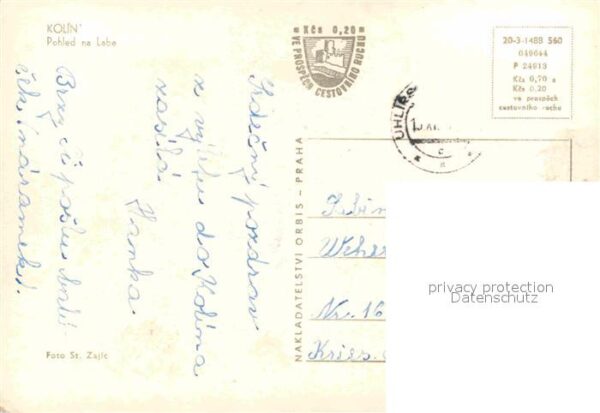 KOLÍN
Pohled na Labe
Kčs 0,20
VE PROSPĚCH CESTOVNÍHO RUCHU
20-3-1488 560
049644
P 24913
Kčs 0,70 a
Kčs 0,20
ve prospěch
cestovního ruchu
Srdečný pozdrav
z výletu do Kolína
zasílá
Hanka
Brzy Ti pošlu
(náramek).
NAKLADATELSTVÍ ORBIS – PRAHA
Nr. 16
Kries.
privacy protection
Datenschutz
Foto St. Zajíc